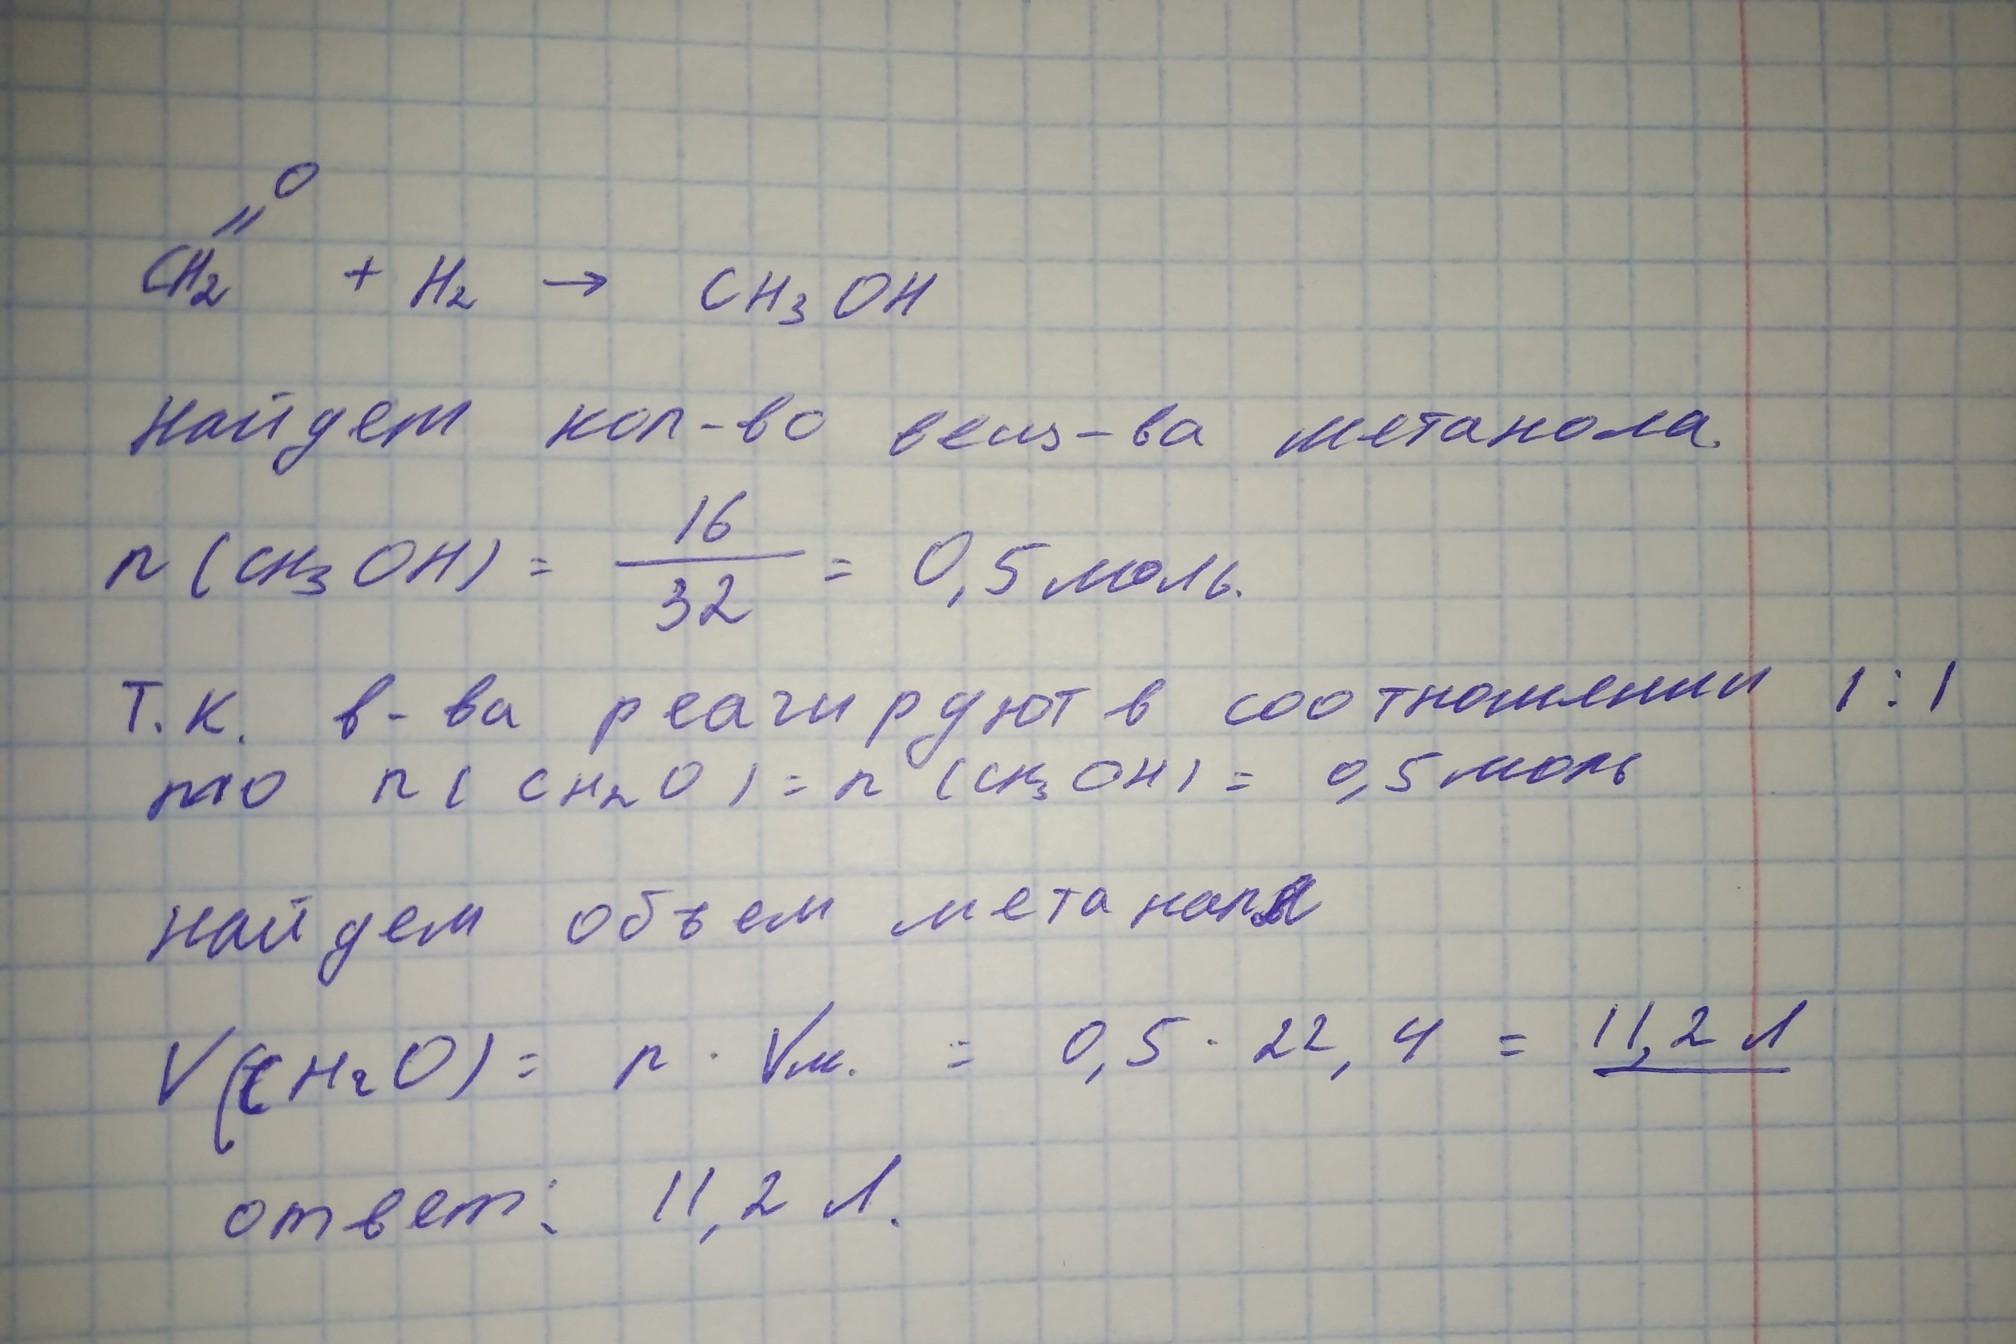 O
CH₂ + H₂ → CH₃OH
Найдем кол-во вещ-ва метанола.
n(CH₃OH) = 16/32 = 0,5 моль.
Т.к. в-ва реагируют в соотношении 1:1
то n(CH₂O) = n(CH₃OH) = 0,5 моль
Найдем объем метаналя
V(CH₂O) = n · Vм. = 0,5 · 22,4 = 11,2 л
ответ: 11,2 л.